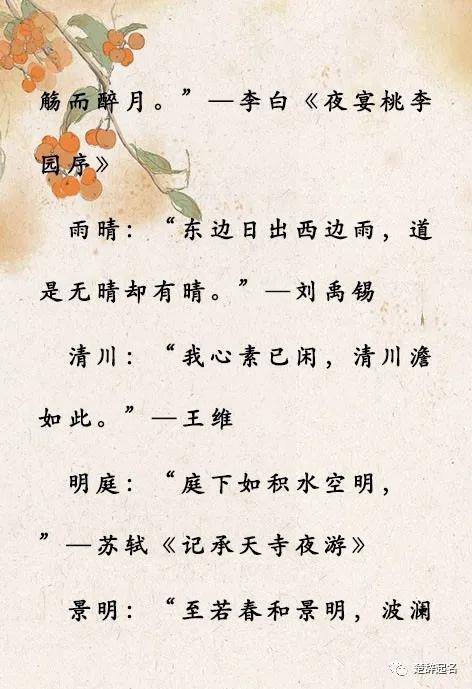 觞而醉月。”—李白《夜宴桃李
园序》
雨晴：“东边日出西边雨，道
是无晴却有晴。”—刘禹锡
清川：“我心素已闲，清川澹
如此。”—王维
明庭：“庭下如积水空明，
”—苏轼《记承天寺夜游》
景明：“至若春和景明，波澜
楚辞起名